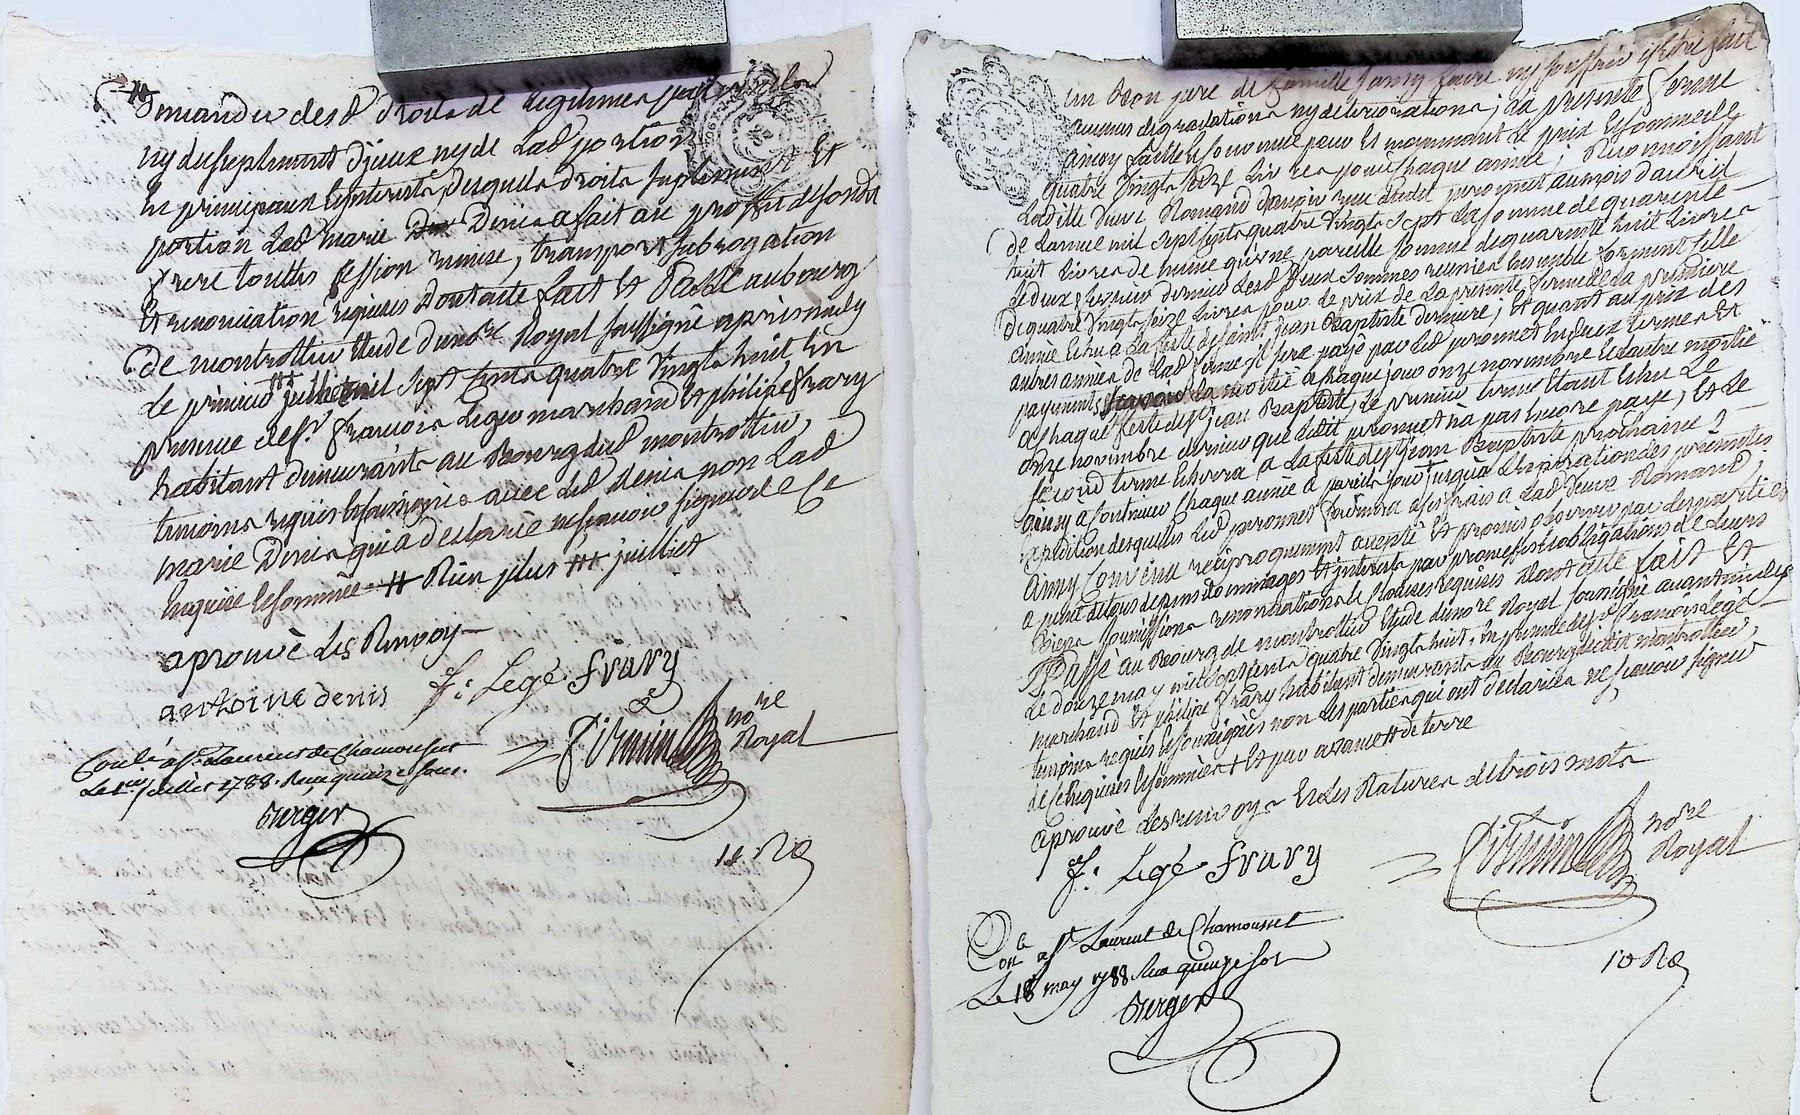 demander desd droits de legitimes paternelles
ny du suplement d'jeux ny de lad portion
en principaux Interets, desquels droits suplement et
portion lad marie Denis a fait au proffit desondit
frere touttes session remise, transport subrogation
et renonciation requises Dont acte fait et Passé au bourg
de montrottier Etude du nore Royal soussigné apres midy
le premier juillet mil sept cents quatre vingts huit, En
presence de sr francois Legé marchand et philipe frary
habitant demeurants au Bourg dud montrottier,
temoins requis et soussignés avec led denis non lad
marie Denis qui a declarée ne scavoir signer de ce
Enquise et sommée # Rien plus ## juilliet
aprouvé les Renvoy
antoine denis f: Legé frary
Pirmin nore Royal
Conlé a St Laurent de Chamousset
Le 1er juillet 1788. Reçu quinze sous.
Berger
un Bon pere de famille sans y faire ny souffrir y etre fait
aucunes degradations ny deteriorations; La presente ferme
ainsy faitte et convenue pour et moyennant le prix et somme de
quatre vingts seize Livres pour chaque année; Reconnoissant
Laditte veuve Romand d'avoir reçu dudit peronnet au mois d'avril
de l'année mil sept cents quatre vingts sept La somme de quarente
huit Livres de même qu'une pareille somme de quarente huit Livres
Le deux fevrier dernier Lesd Deux sommes reunies Ensemble forment celle
de quatre vingts seize Livres pour le prix de la presente ferme de la premiere
année Echue a la feste de saint jean Baptiste derniere; Et quant au prix des
autres années de lad ferme il sera payé par led peronnet En deux termes et
payements la moitié a chaque jour onze novembre et l'autre moitié
a chaque feste de st jean Baptiste, Le premier terme Etant Echu Le
onze novembre dernier que ledit peronnet n'a pas encore payé, et le
second terme Echerra a la feste de st jean Baptiste prochaine
ainsy a continuer chaque année a pareils jours jusqu'a L'expiration des presentes
Expedition desquelles led peronnet fournira a ses frais a lad veuve Romand;
ainsy Convenu reciproquement accepté et promis observer par les parties
a peine de tous depens dommages et interets par promesses et obligations de leurs
Biens soumissions renonciations et clauses requises Dont acte fait Et
Passé au Bourg de montrottier Etude du nore Royal soussigné avant midy
Le douze may mil sept cents quatre vingts huit, En presence de sr francois Legé
marchand et philipe frary habitant demeurants au Bourg dudit montrottier,
temoins requis et soussignés non les parties qui ont declarées ne scavoir signer
de ce Enquises et sommées + et par avance # de terre
aprouvé les renvoys et les Ratures de trois mots
f: Legé frary
Pirmin nore Royal
Conlé a St Laurent de Chamousset
Le 18 may 1788 Reçu quinze sols
Berger
10 Re